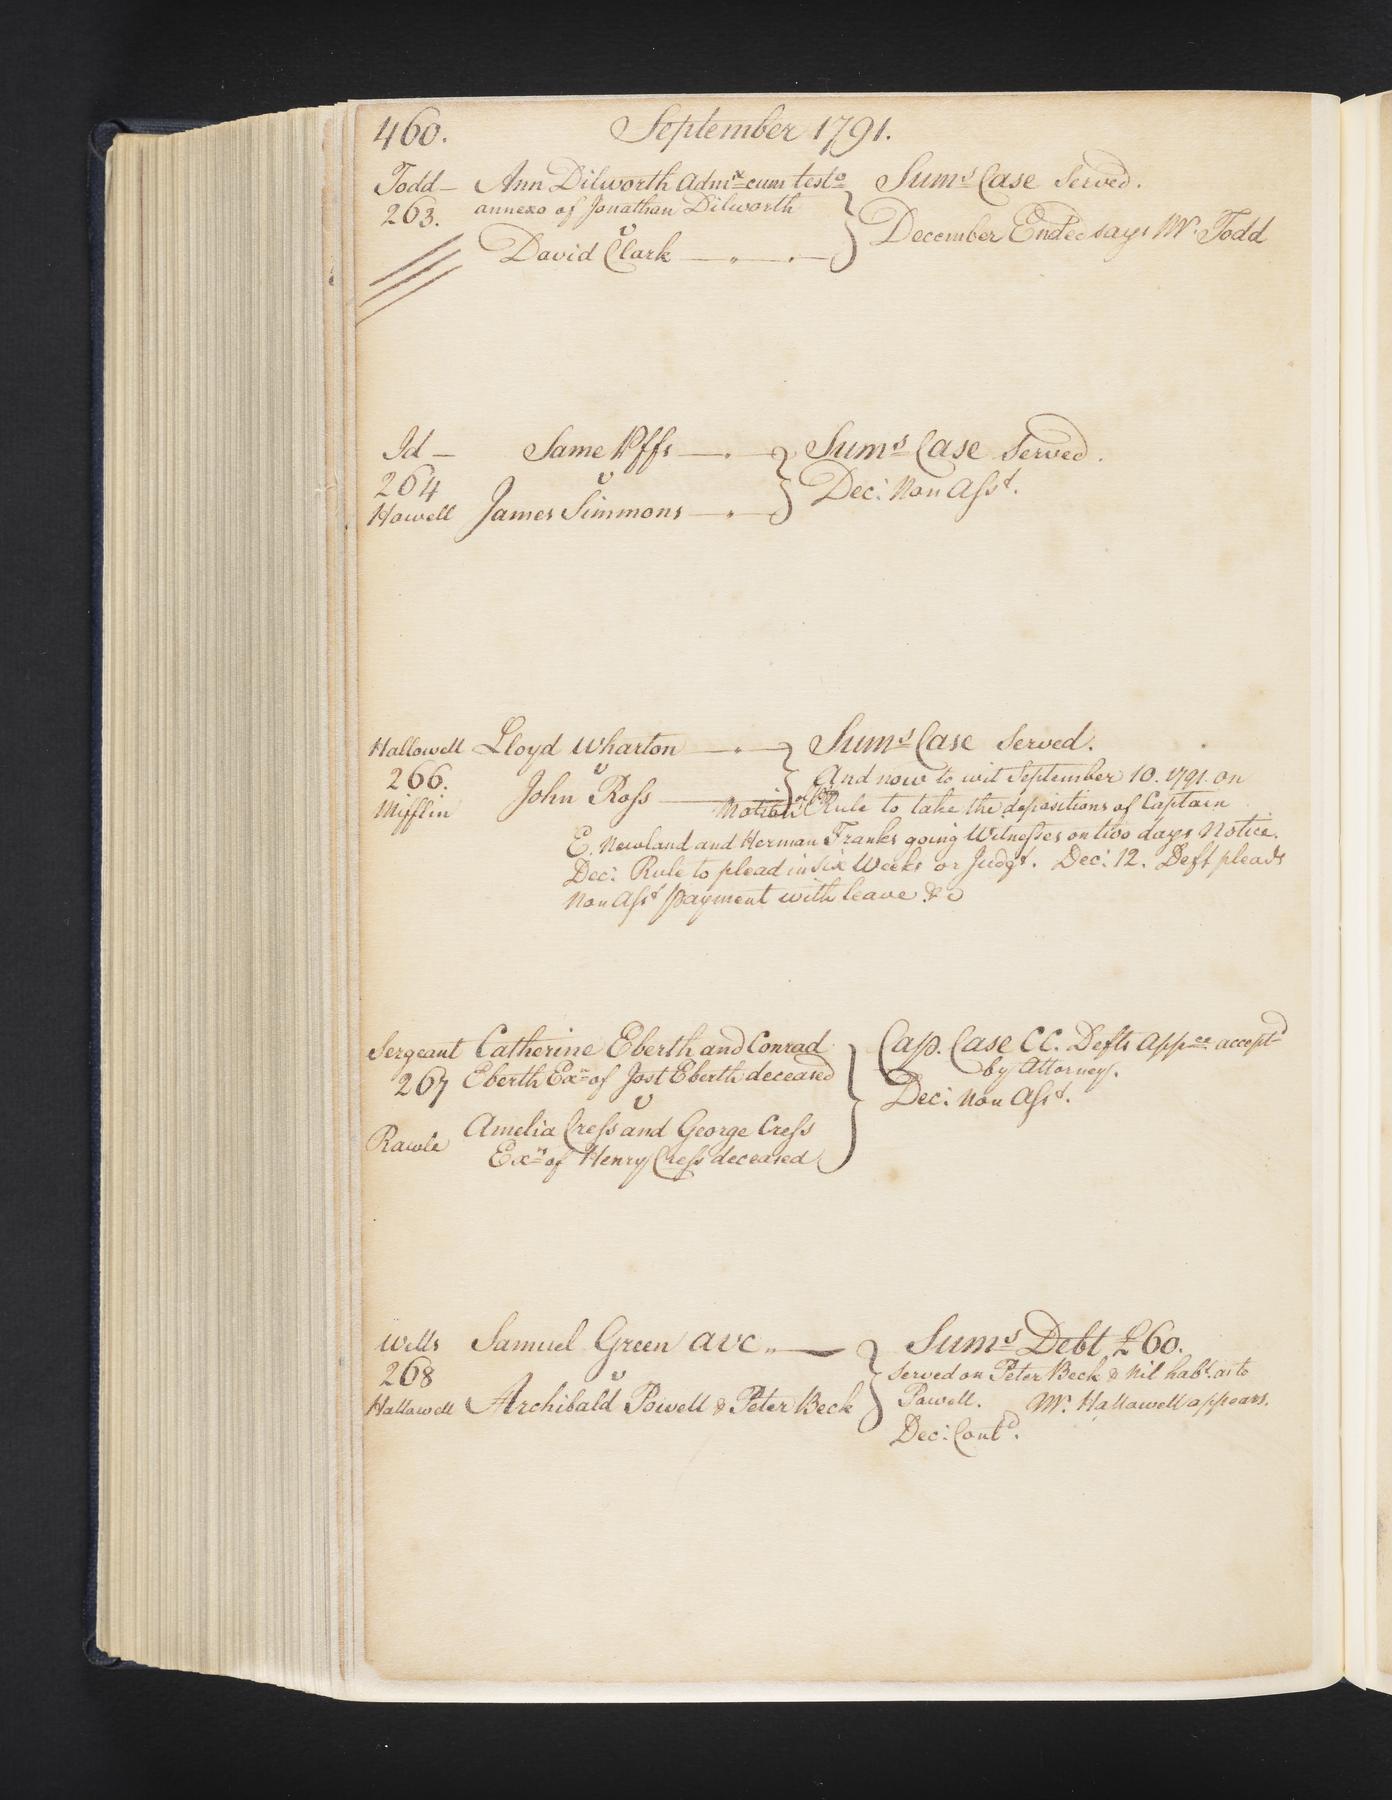 460. September 1791.
Todd — Ann Dilworth Admx cum testo Sums Case Served.
263. annexo of Jonathan Dilworth
v December Ended says Mr. Todd
David Clark
Id — Same Plffs Sums Case Served.
264 v Dec: Non Asst.
Howell James Simmons
Hallowell Lloyd Wharton Sums Case Served.
266. v And now to wit September 10. 1791. on
Mifflin John Ross Motion Rule to take the depositions of Captain
E. Newland and Herman Franks going Witnesses on two days Notice.
Dec: Rule to plead in six Weeks or Judgt. Dec: 12. Deft pleads
Non Asst payment with leave &c
Sergeant Catherine Eberth and Conrad Cap. Case CC. Defts appce accepd
267 Eberth Exrs of Jost Eberth deceased by Attorney.
v Dec: Non Asst.
Rawle Amelia Cress and George Cress
Exrs of Henry Cress deceased
Wells Samuel Green avc Sums Debt £60.
268 v Served on Peter Beck & Nil habt. as to
Hallowell Archibald Powell & Peter Beck Powell. Mr. Hallowell appears.
Dec: Contd.